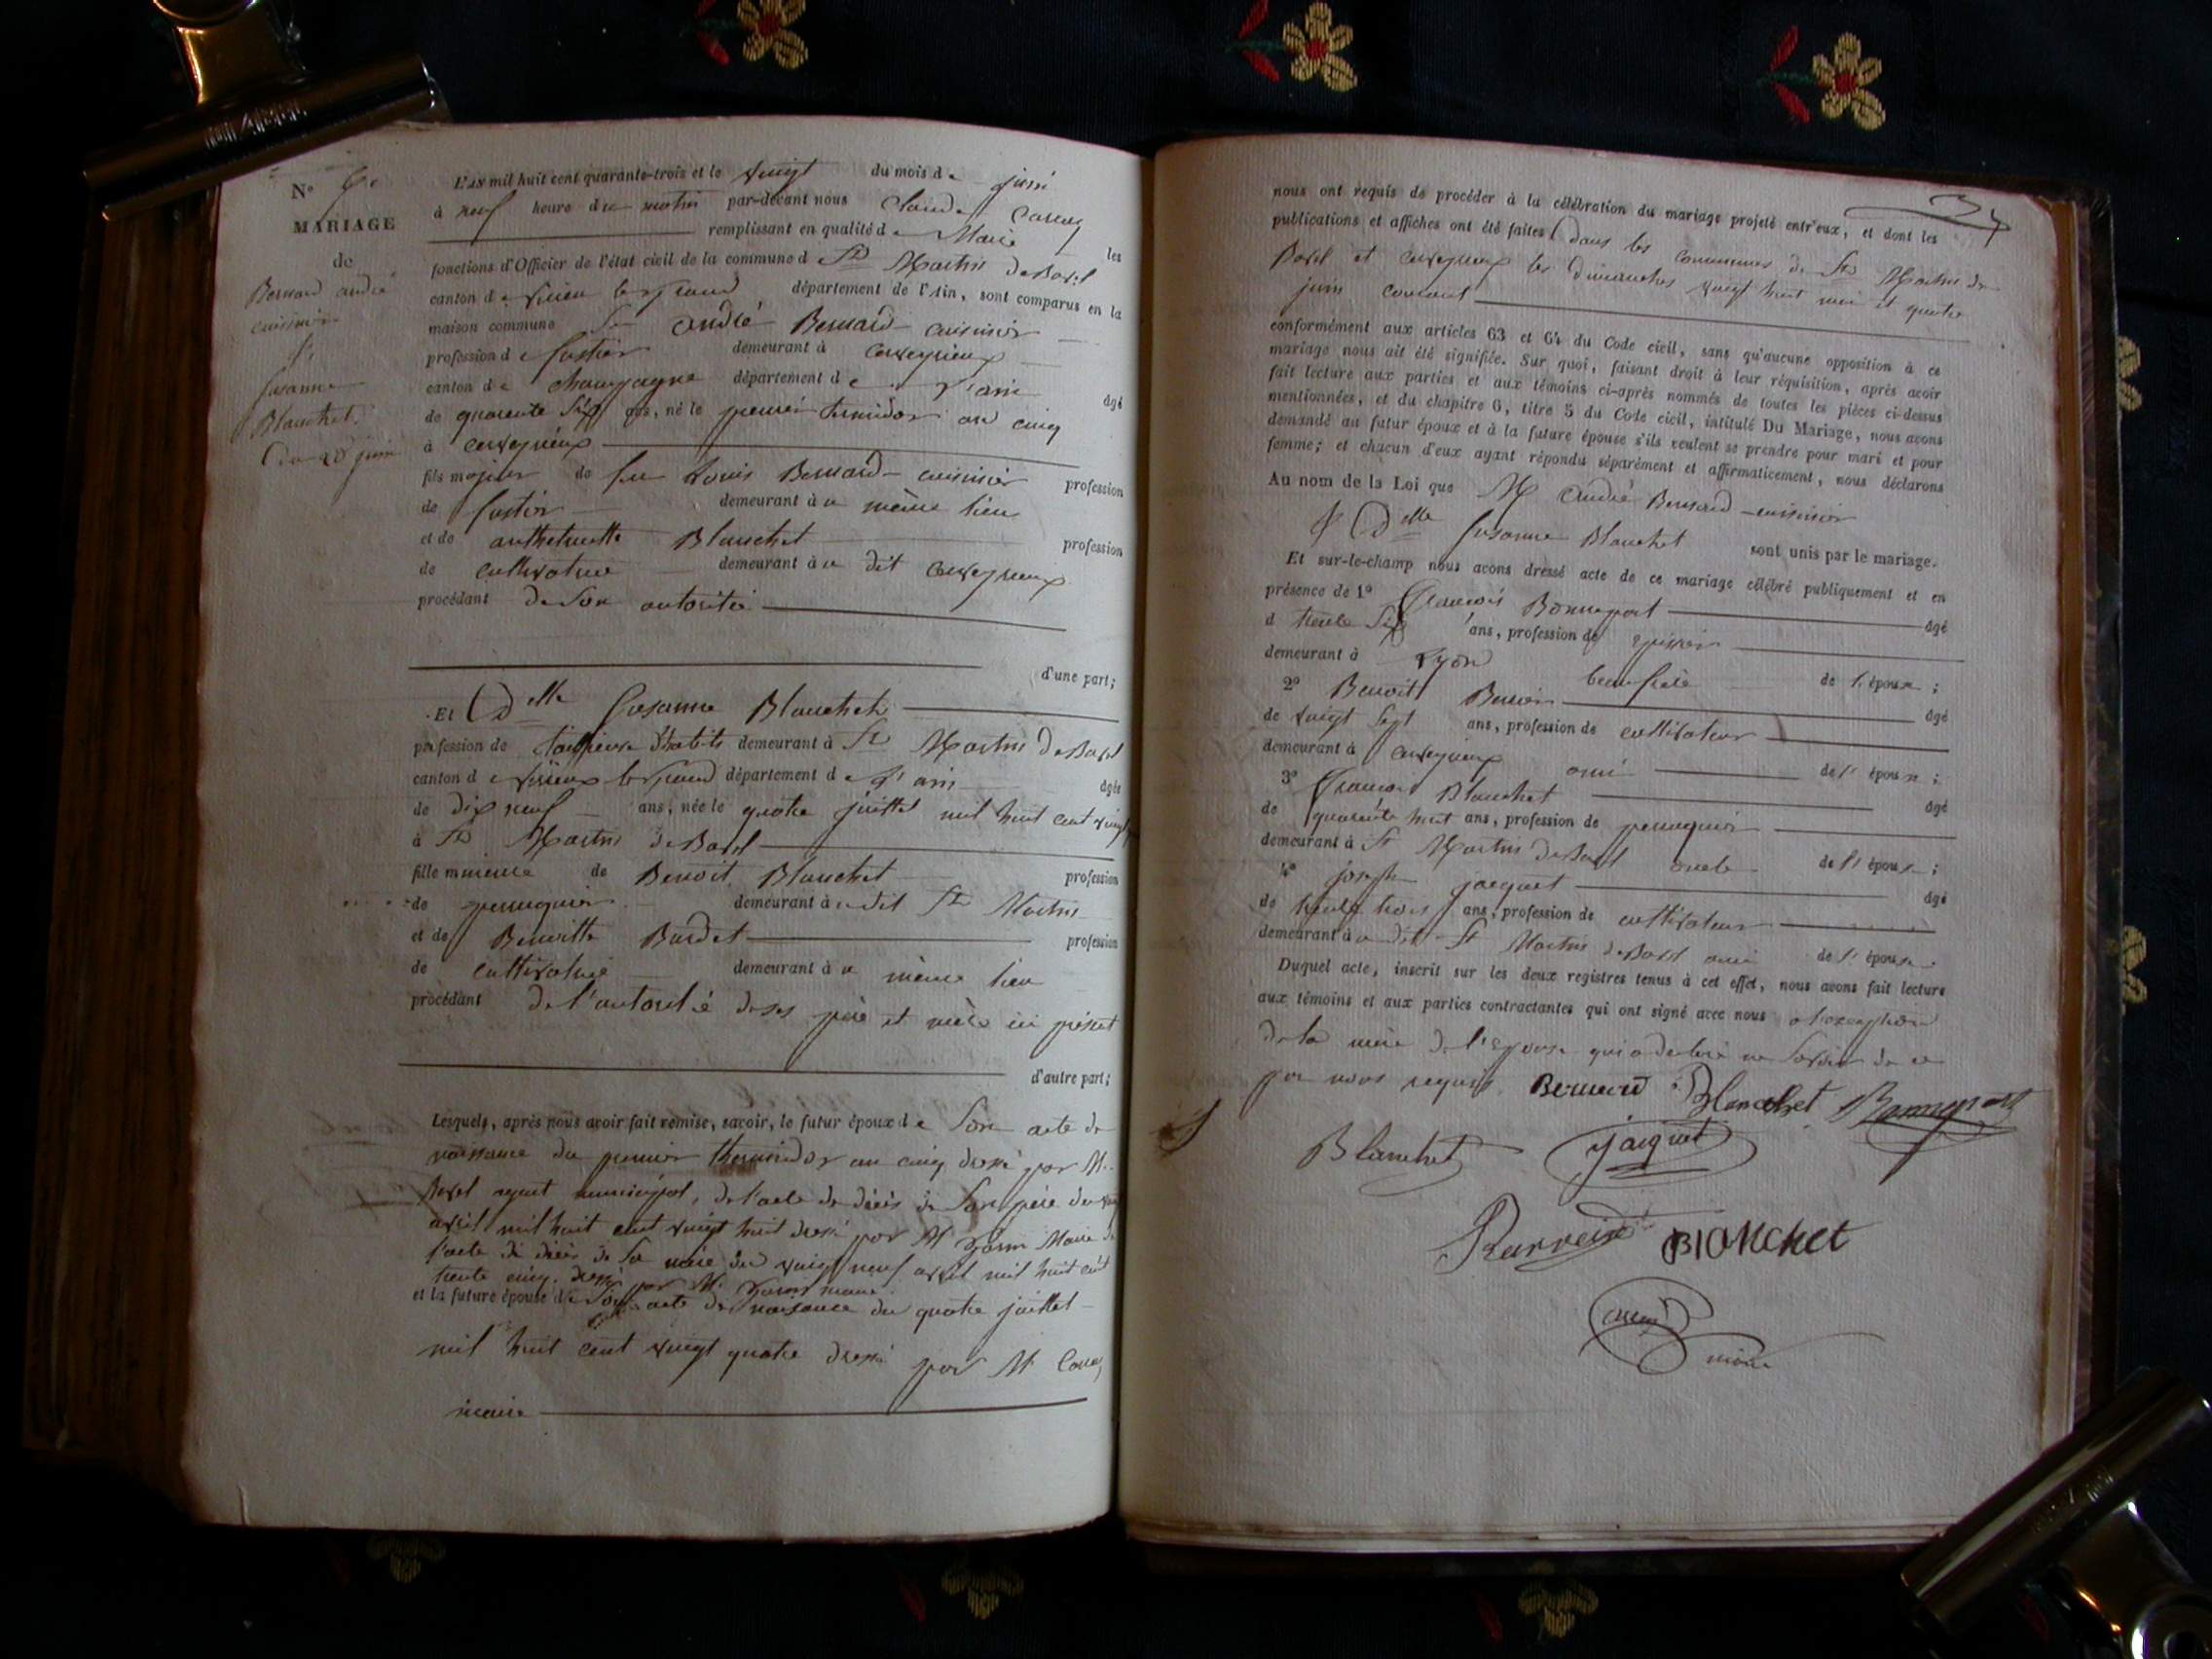 N° 6.
MARIAGE
de
Bernard André
cuisinier
&
Susanne
Blanchet.
Du 20 juin
L'AN mil huit cent quarante-trois et le vingt du mois de juin
à neuf heure du matin par-devant nous Claude
remplissant en qualité de Maire les
fonctions d'Officier de l'état civil de la commune de St Martin de Bavel
canton de virieu le grand département de l'Ain, sont comparus en la
maison commune Sr André Bernard cuisinier
profession de demeurant à ceyzerieux
canton de champagne département de l'ain âgé
de quarante six ans, né le premier termidor an cinq
à ceyzerieux
fils majeur de feu Louis Bernard cuisinier profession
de demeurant au même lieu
et de anthelmette Blanchet profession
de cultivatrice demeurant au dit
procédant de son autorité
d'une part;
Et Delle Susanne Blanchet
profession de tailleuse d'habits demeurant à St Martin de Bavel
canton de virieux le grand département de l'ain âgée
de dix neuf ans, née le quatre juillet mil huit cent vingt
à St Martin de Bavel
fille mineure de Benoit Blanchet profession
de perruquier demeurant au dit St Martin
et de Benoitte Burdet profession
de cultivatrice demeurant au même lieu
procédant de l'autorité de ses père et mère ici présent
d'autre part;
Lesquels, après nous avoir fait remise, savoir, le futur époux de son acte de
naissance du premier thermidor an cinq dressé par M.
Bavel agent municipal, de l'acte de décès de son père du
avril mil huit cent vingt huit dressé par M maire de
l'acte de décès de sa mère du vingt neuf avril mil huit cent
trente cinq dressé par M. maire.
et la future épouse de son acte de naissance du quatre juillet
mil huit cent vingt quatre dressé par M
maire
nous ont requis de procéder à la célébration du mariage projeté entr'eux, et dont les
publications et affiches ont été faites dans les communes de St Martin de
Bavel et les dimanches vingt huit mai et quatre
juin courant
conformément aux articles 63 et 64 du Code civil, sans qu'aucune opposition à ce
mariage nous ait été signifiée. Sur quoi, faisant droit à leur réquisition, après avoir
fait lecture aux parties et aux témoins ci-après nommés de toutes les pièces ci-dessus
mentionnées, et du chapitre 6, titre 5 du Code civil, intitulé Du Mariage, nous avons
demandé au futur époux et à la future épouse s'ils veulent se prendre pour mari et pour
femme; et chacun d'eux ayant répondu séparément et affirmativement, nous déclarons
Au nom de la Loi que M André Bernard cuisinier
& Delle Susanne Blanchet sont unis par le mariage.
Et sur-le-champ nous avons dressé acte de ce mariage célébré publiquement et en
présence de 1° François Bonnepart âgé
de trente six ans, profession de
demeurant à Lyon beau frère de l'époux;
2° Benoit âgé
de vingt sept ans, profession de cultivateur
demeurant à ami de l'époux;
3° François Blanchet âgé
de quarante huit ans, profession de perruquier
demeurant à St Martin de Bavel oncle de l'épouse;
4° joseph jacquet âgé
de trente trois ans, profession de cultivateur
demeurant au dit St Martin de Bavel ami de l'épouse.
Duquel acte, inscrit sur les deux registres tenus à cet effet, nous avons fait lecture
aux témoins et aux parties contractantes qui ont signé avec nous à l'exception
de la mère de l'épouse qui a declaré ne savoir de ce
par nous requis. Bernard Blanchet Bonnepart
Blanchet jacquet
BlANchet
maire